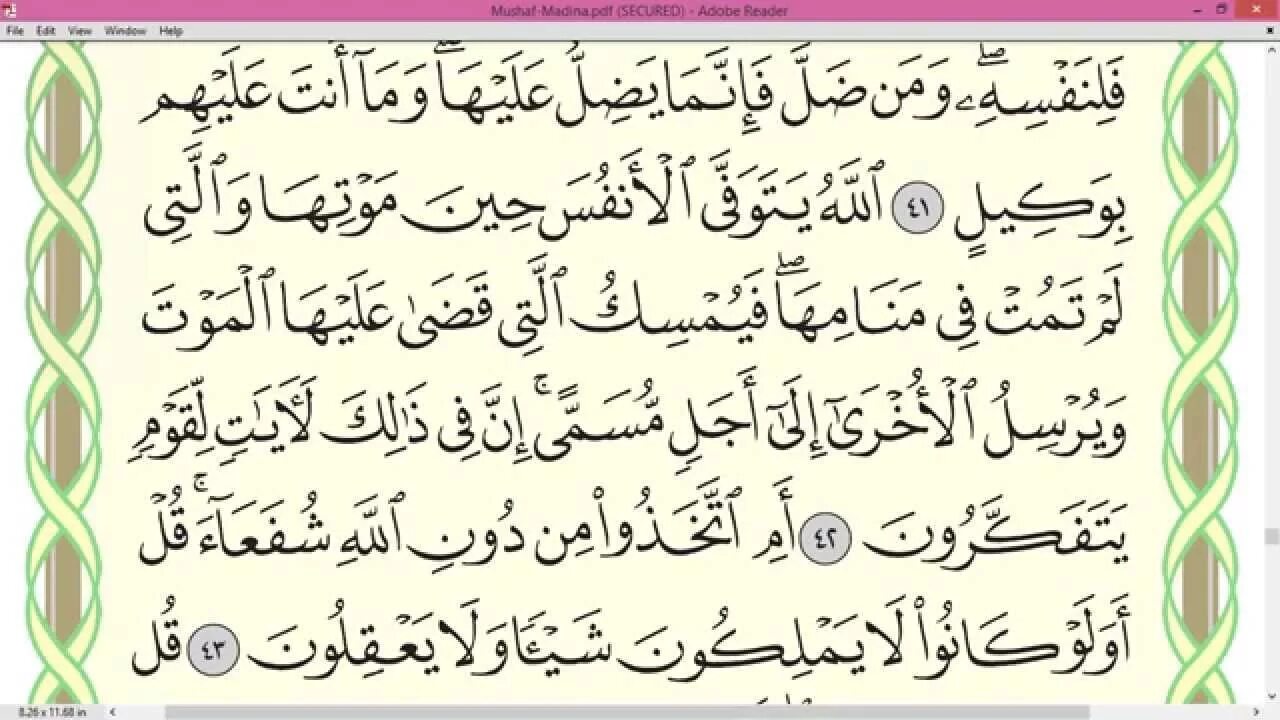 Mushaf-Madina.pdf (SECURED) - Adobe Reader
File Edit View Window Help
فَلِنَفْسِهِۦۖ وَمَن ضَلَّ فَإِنَّمَا يَضِلُّ عَلَيْهَاۖ وَمَآ أَنتَ عَلَيْهِم
بِوَكِيلٍ ٤١ ٱللَّهُ يَتَوَفَّى ٱلْأَنفُسَ حِينَ مَوْتِهَا وَٱلَّتِى
لَمْ تَمُتْ فِى مَنَامِهَاۖ فَيُمْسِكُ ٱلَّتِى قَضَىٰ عَلَيْهَا ٱلْمَوْتَ
وَيُرْسِلُ ٱلْأُخْرَىٰٓ إِلَىٰٓ أَجَلٍ مُّسَمًّىۚ إِنَّ فِى ذَٰلِكَ لَـَٔايَـٰتٍ لِّقَوْمٍ
يَتَفَكَّرُونَ ٤٢ أَمِ ٱتَّخَذُوا۟ مِن دُونِ ٱللَّهِ شُفَعَآءَۚ قُلْ
أَوَلَوْ كَانُوا۟ لَا يَمْلِكُونَ شَيْـًٔا وَلَا يَعْقِلُونَ ٤٣ قُل
8.26 x 11.68 in